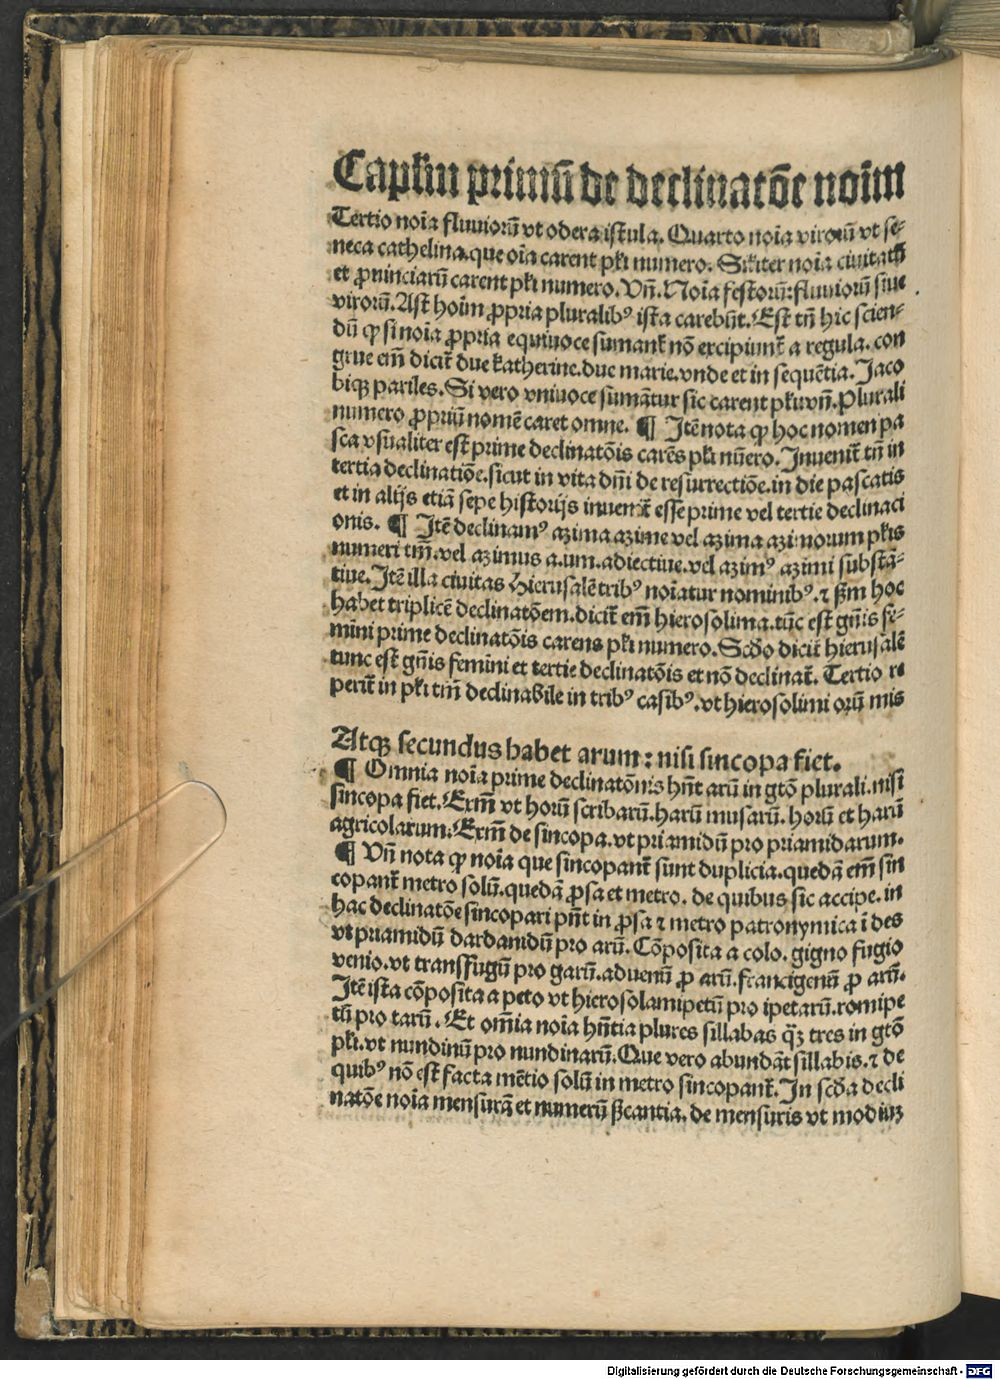 Capłm primū de declinatōe noīm
Tertio noīa fluuiorū vt odera istula. Quarto noīa virorū vt se-
neca cathelina. que oīa carent płi numero. Siłiter noīa ciuitatū
et ꝓuinciarū carent płi numero. Vn̄. Noīa festorū: fluuiorū siue
virorū. Ast hoīm ꝓpria pluralibꝰ ista carebūt. Est tn̄ hic scien-
dū ꝙ si noīa ꝓpria equiuoce sumant᷑ nō excipiunt᷑ a regula. con
grue em̄ dicit᷑ due katherine. due marie. vnde et in sequētia. Jaco
biqꝫ pariles. Si vero vniuoce sumātur sic carent płi. vn̄. Plurali
numero ꝓpriū nomē caret omne. ¶ Itē nota ꝙ hoc nomen pa
sca vsualiter est prime declinatōis carēs płi nūero. Inuenit᷑ tn̄ in
tertia declinatiōe. sicut in vita dn̄i de resurrectiōe. in die pascatis
et in alijs etiā sepe historijs inuenit᷑ esse prime vel tertie declinaci
onis. ¶ Itē declinamꝰ azima azime vel azima azimorum płis
numeri tm̄. vel azimus a. um. adiectiue. vel azimꝰ azimi substā-
tiue. Itē illa ciuitas Hierusalē tribꝰ noīatur nominibꝰ. ⁊ ẜm hoc
habet triplicē declinatōem. dicit᷑ em̄ hierosolima. tūc est gn̄is fe-
mini prime declinatōis carens płi numero. Scd̄o dicit᷑ hierusalē
tunc est gn̄is femini et tertie declinatōis et nō declinat᷑. Tertio re
perit᷑ in płi tm̄ declinabile in tribꝰ casibꝰ. vt hierosolimi orū mis
Atqꝫ secundus habet arum: nisi sincopa fiet.
¶ Omnia noīa prime declinatōnis hn̄t arū in gtō plurali. nisi
sincopa fiet. Exm̄ vt horū scribarū. harū musarū. horū et harū
agricolarum. Exm̄ de sincopa. vt priamidū pro priamidarum.
¶ Vn̄ nota ꝙ noīa que sincopant᷑ sunt duplicia. quedā em̄ sin
copant᷑ metro solū. quedā ꝓsa et metro. de quibus sic accipe. in
hac declinatōe sincopari pn̄t in ꝓsa ⁊ metro patronymica ī des
vt priamidū dardanidū pro arū. Cōposita a colo. gigno fugio
venio. vt transfugū pro garū. aduenū ꝓ arū. francigenū ꝓ arū.
Itē ista cōposita a peto vt hierosolamipetū pro ipetarū. romipe
tū pro tarū. Et om̄ia noīa hn̄tia plures sillabas qꝫ̄ tres in gtō
płi. vt nundinū pro nundinarū. Que vero abundāt sillabis. ⁊ de
quibꝰ nō est facta mētio solū in metro sincopant᷑. In scd̄a decli
natōe noīa mensurā et numerū ẜicantia. de mensuris vt modiuꝫ
Digitalisierung gefördert durch die Deutsche Forschungsgemeinschaft - DFG